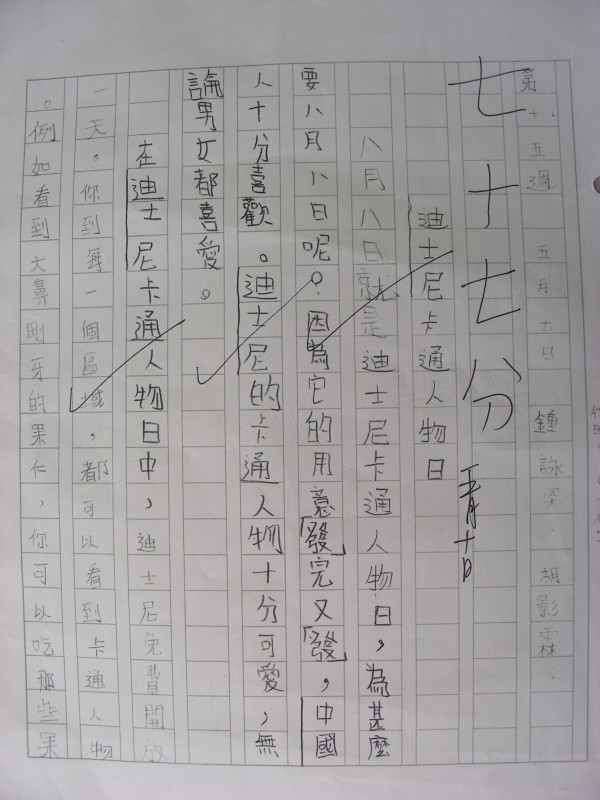 第十五週 五月七日 鍾詠 、胡影霖、
七十七分 五月十日
迪士尼卡通人物日
八月八日就是迪士尼卡通人物日,為甚麼
要八月八日呢?因為它的用意「發完又發」,中國
人十分喜歡。迪士尼的卡通人物十分可愛,無
論男女都喜愛。
在迪士尼卡通人物日中,迪士尼免費開放
一天,你到每一個區域,都可以看到卡通人物
。例如看到大鼻剛牙的果仁,你可以吃那些果